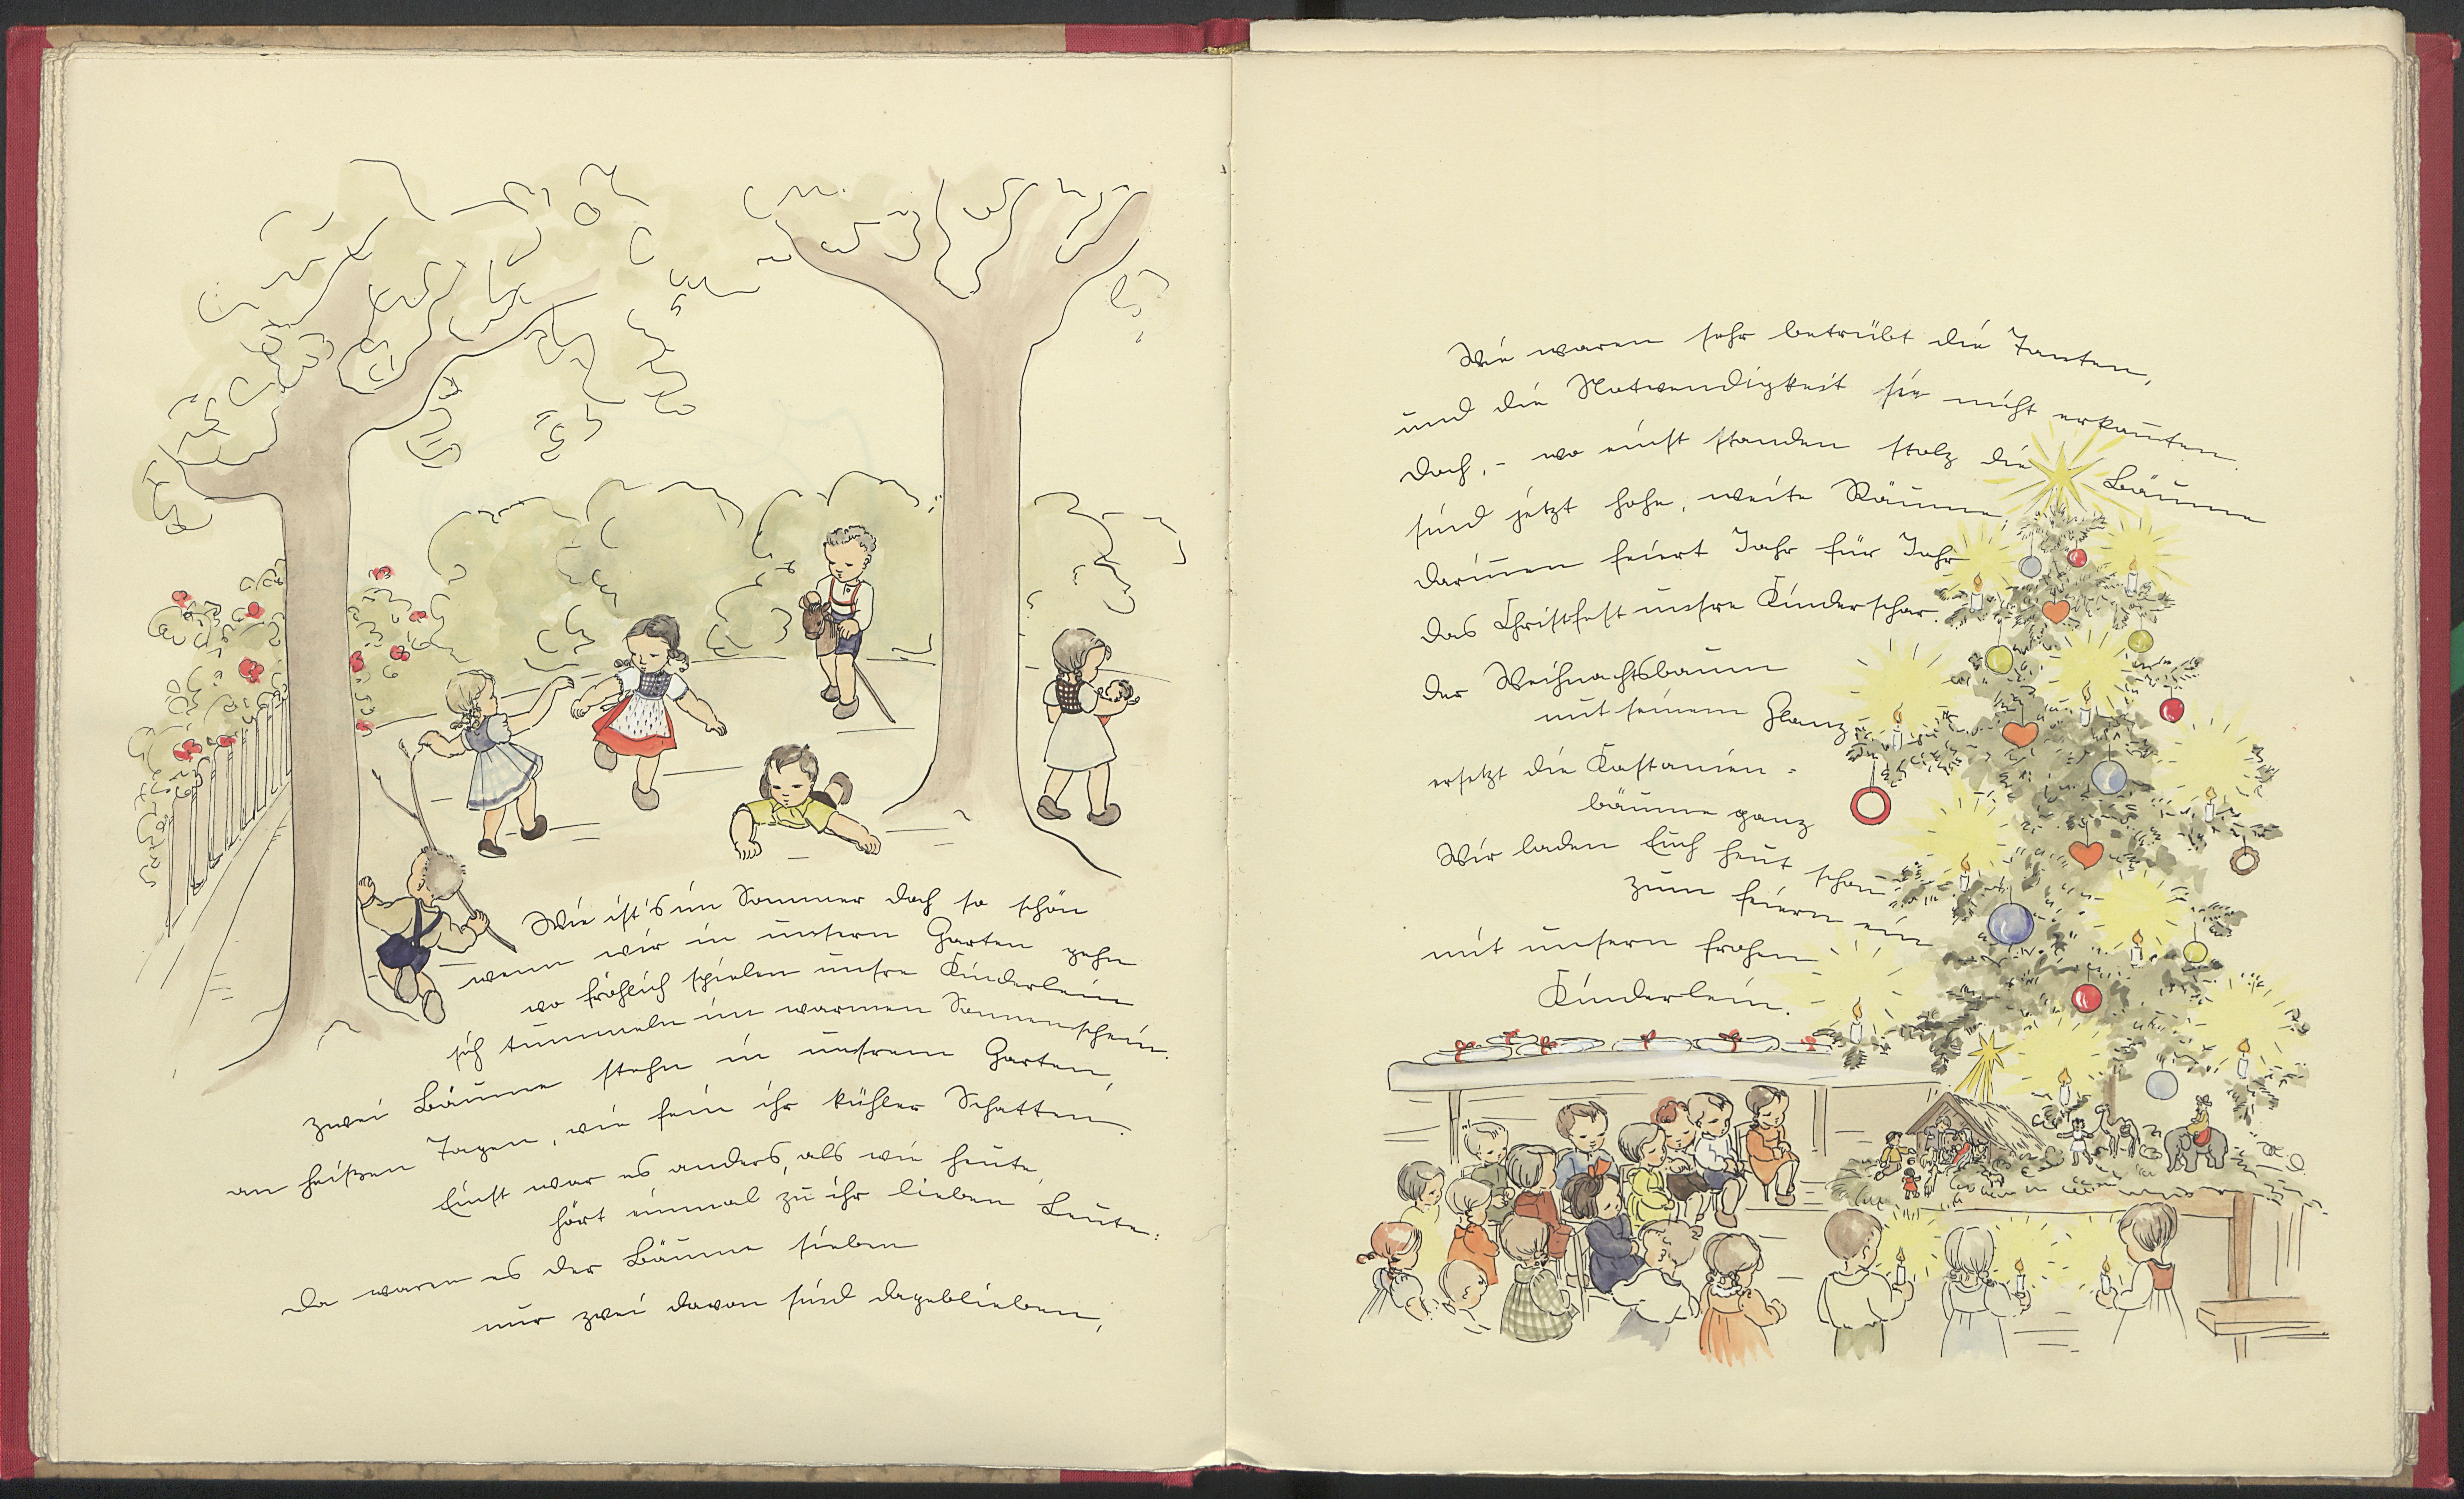 Wie ist's im Sommer doch so schön
wenn wir in unsern Garten gehn
wo fröhlich spielen unsre Kinderlein
sich tummeln im warmen Sonnenschein.
Zwei Bäume stehn in unsrem Garten,
an heißen Tagen, wie fein ihr kühler Schatten.
Einst war es anders, als wie heute,
hört einmal zu ihr lieben Leute:
Da waren es der Bäume sieben
nur zwei davon sind dageblieben,
Wie waren sehr betrübt die Tanten,
und die Notwendigkeit sie nicht erkannten.
Doch, - wo einst standen stolz die Bäume
sind jetzt hohe, weite Räume,
darinnen feiert Jahr für Jahr
das Christfest unsre Kinderschar.
Der Weihnachtsbaum
mit seinem Glanz
ersetzt die Kastanien-
bäume ganz
Wir laden Euch heut schon
zum feiern ein
mit unsern frohen
Kinderlein.